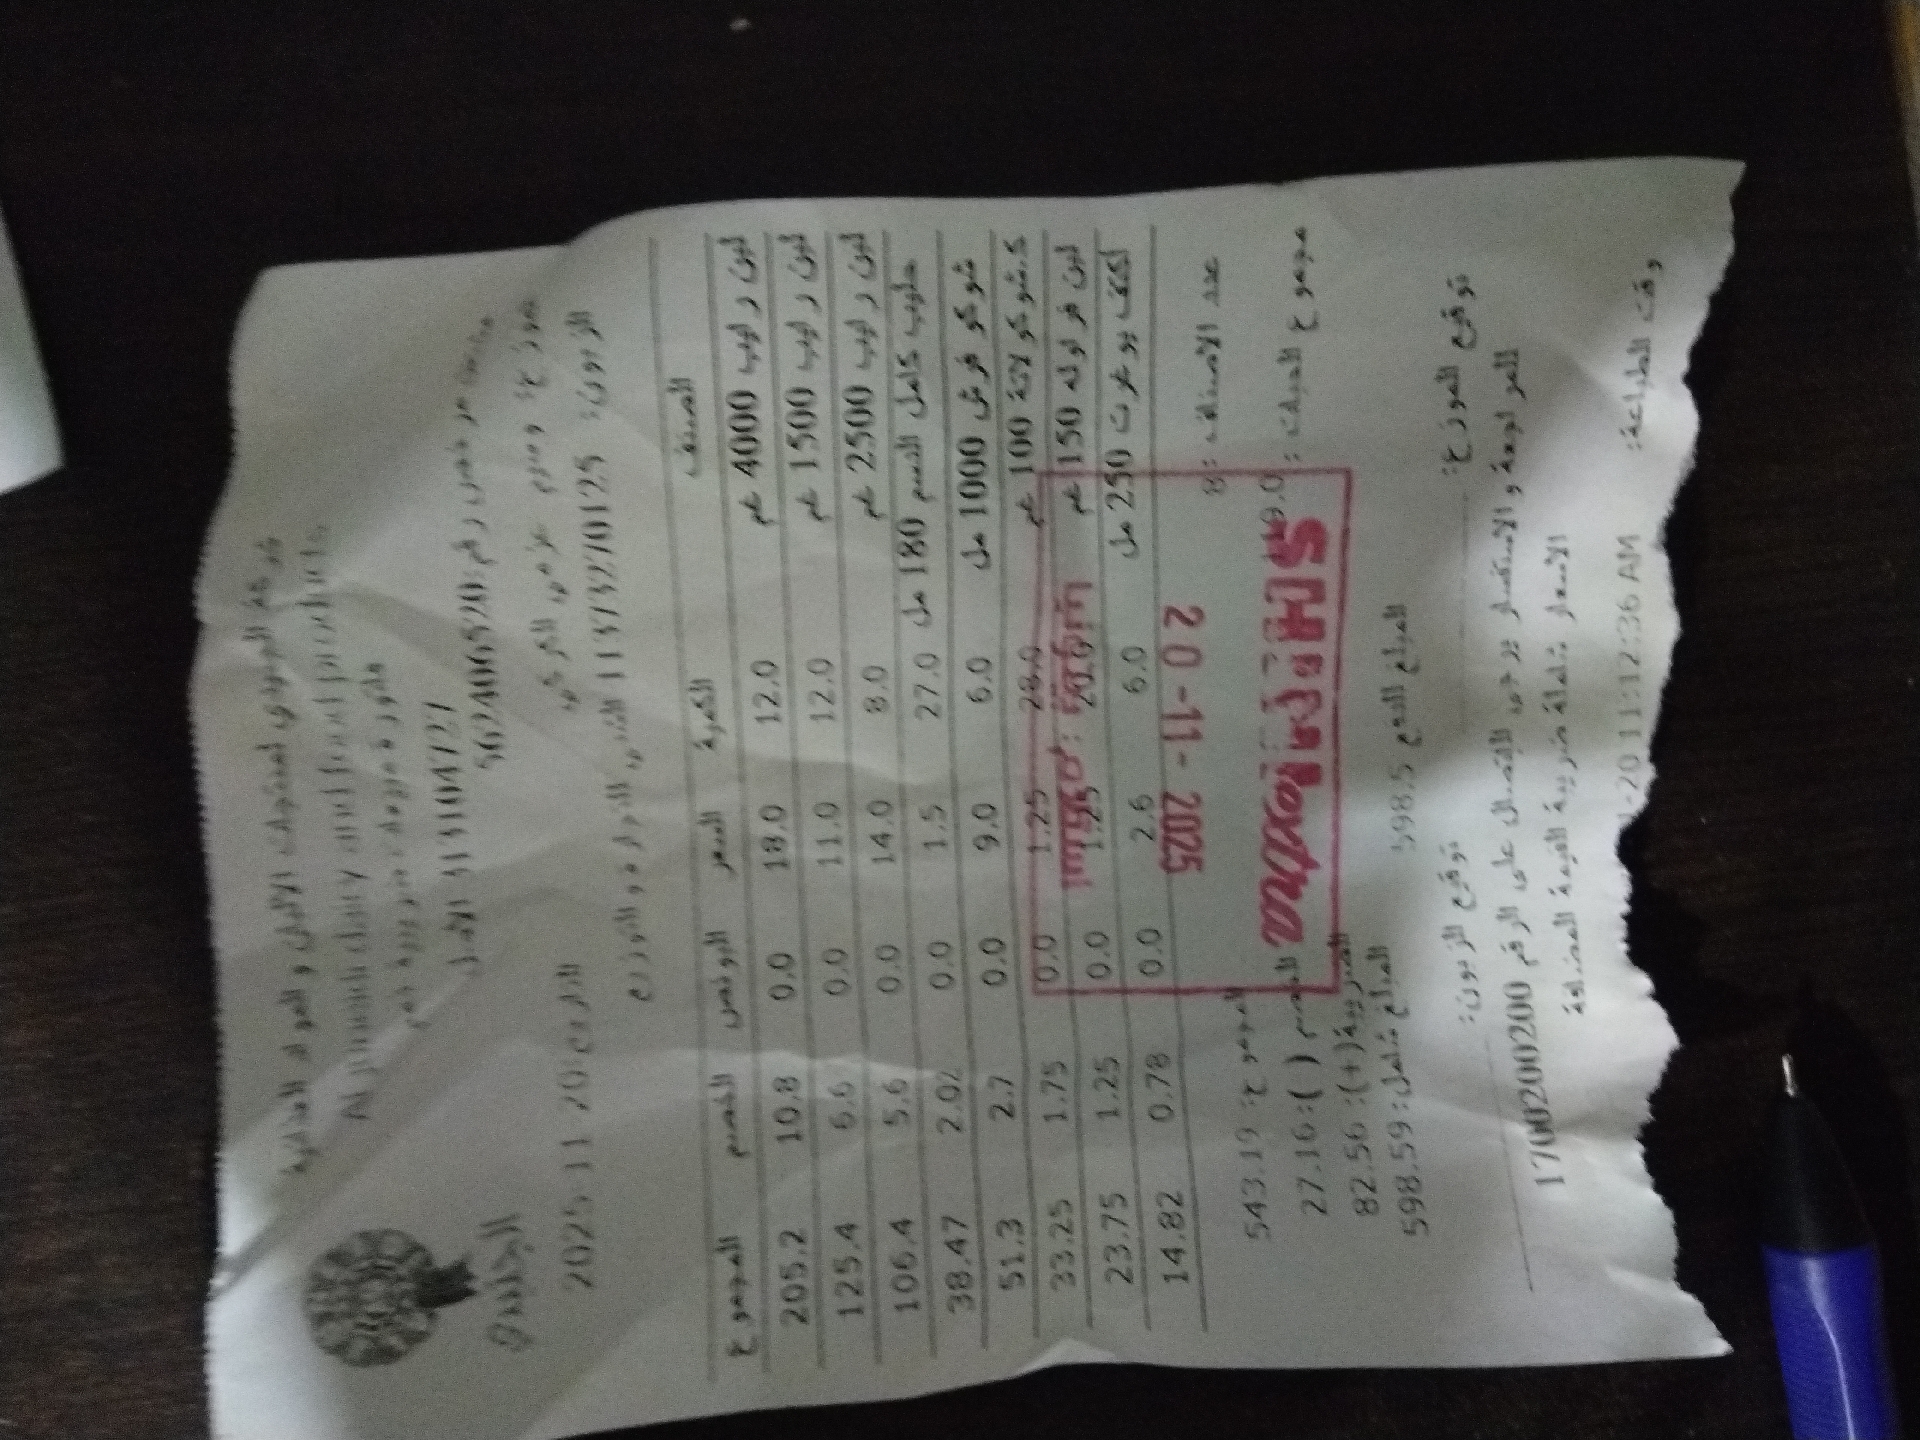 شركة الجنيدي لمنتجات الألبان والمواد الغذائية
Al juneidi dairy and food products
فاتورة مبيعات ضريبية ذمم
الجنيدي
مشتغل مرخص رقم: 562406520
التاريخ 20-11-2025
الزبون: 11373270125
الصنف الكمية السعر البونص الخصم المجموع
لبن رايب 4000 غم 12.0 18.0 0.0 10.8 205.2
لبن رايب 1500 غم 12.0 11.0 0.0 6.6 125.4
لبن رايب 2500 غم 8.0 14.0 0.0 5.6 106.4
حليب كامل الدسم 180 مل 27.0 1.5 0.0 2.02 38.47
شوكو فرش 1000 مل 6.0 9.0 0.0 2.7 51.3
ك.شوكولاتة 100 غم 28.0 1.25 0.0 1.75 33.25
لبن فراوله 150 غم 20.0 1.25 0.0 1.25 23.75
اكتف يوغرت 250 مل 6.0 2.6 0.0 0.78 14.82
20-11-2025
عدد الاصناف: 8
المجموع: 543.19
مجموع الحبات:
الخصم ( ): 27.16
الضريبة(+): 82.56
المبلغ شامل: 598.59
المبلغ للدفع 598.5
توقيع الموزع:
توقيع الزبون:
للمراجعة والاستفسار يرجى الإتصال على الرقم 1700200200
الاسعار شاملة ضريبة القيمة المضافة
وقت الطباعة: 11:12:36 AM